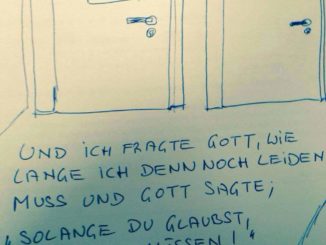 UND ICH FRAGTE GOTT, WIE
LANGE ICH DENN NOCH LEIDEN
MUSS UND GOTT SAGTE;
„SOLANGE DU GLAUBST,
MÜSSEN!“